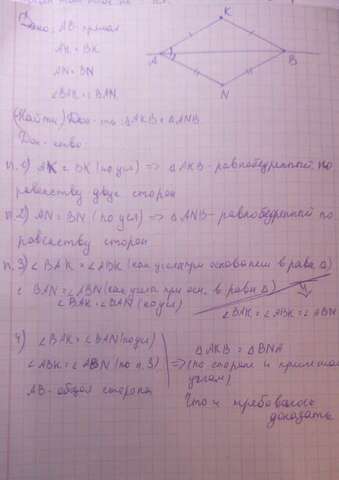 Дано: AB-прямая
K
AK = BK
AN = BN
A
B
∠BAK = ∠BAN
N
(Найти) Док-ть: △AKB = △ANB
Док-ство:
п. 1) AK = BK (по усл) => △AKB-равнобедренный по
равенству двух сторон
п 2) AN = BN (по усл) => △ANB-равнобедренный по
равенству сторон
п. 3) ∠BAK = ∠ABK (как углы при основании в равн △)
∠BAN = ∠ABN (как углы при осн. в равн △)
∠BAK = ∠BAN (по усл)
∠BAK = ∠ABK = ∠ABN
4) ∠BAK = ∠BAN (по усл)
∠ABK = ∠ABN (по п. 3)
AB-общая сторона
△AKB = △BNA
=> (по стороне и прилежащ
углам)
Что и требовалось
доказать